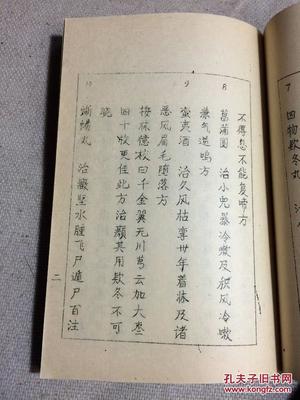 7 四物款冬丸
不得息不能复啼方
8 菖蒲圆 治小儿暴冷嗽及积风冷嗽
兼气逆鸣方
9 蛮夷酒 治久风枯挛卅年着床及诸
恶风眉毛堕落方
按德校曰千金翼无川芎云加大枣
四十枚更佳此方治癫其用款冬不可
晓
10 蜥蜴丸 治癥坚水肿飞尸遁尸百注
二
孔夫子旧书网